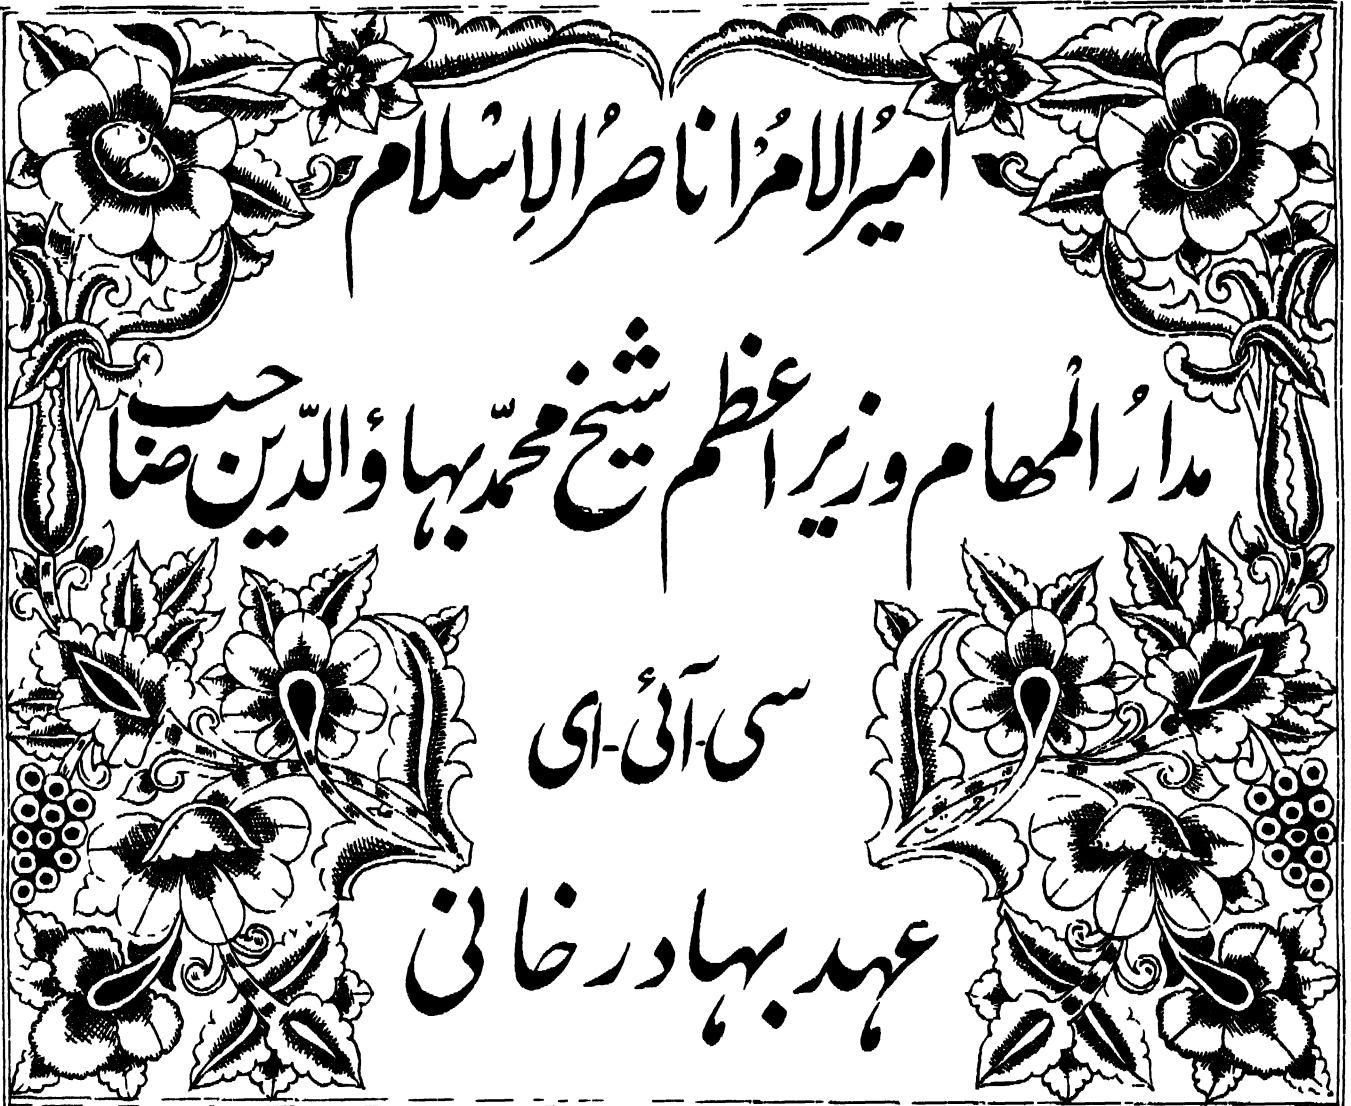 امیرُ الامرُا ناصرُ الاِسْلام
مدارُ الْمهام وزیر اعظم شیخ محمّد بہاؤالدّین صاحب
سی-آئی-ای
عہد بہادر خانی